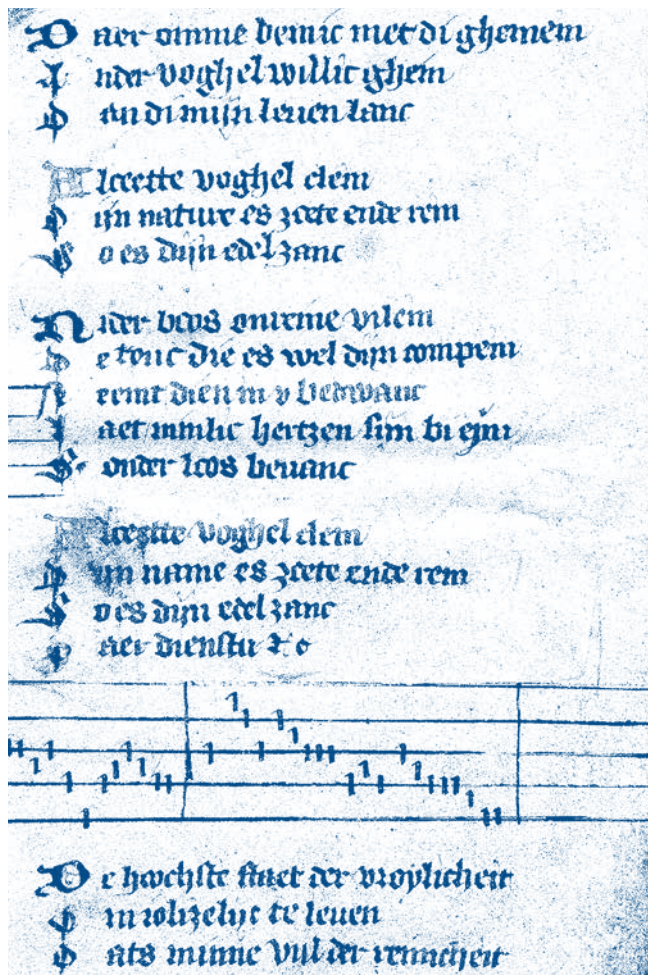 Daer omme bemic met di ghemem
Ander voghel willic ghem
Dan di mijn leuen lanc
Aloeette voghel clem
Dijn nature es zoete ende rem
So es dijn edel zanc
Nider boos onreine vilem
De tonc die es wel dijn compem
Neemt dien in v bedwanc
Laet minlic hertzen sijn bi ejm
Sonder loos beuanc
Aloeette voghel clem
Dijn name es zoete ende rem
So es dijn edel zanc
Daer dienstu
De hoochste staet der vroylicheit
in te leuen
Dats minne vul der reinicheit